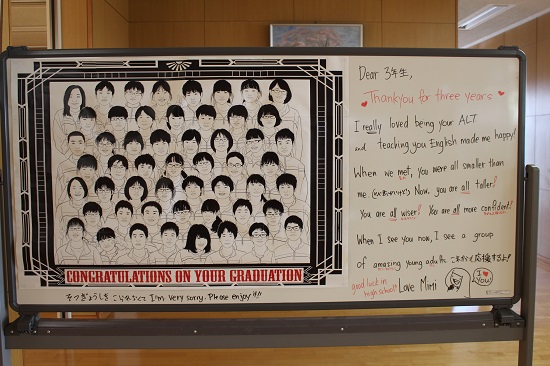 CONGRATULATIONS ON YOUR GRADUATION
I'm very sorry. Please enjoy!!!
Dear 3年生,
Thankyou for three years
I really loved being your ALT
and teaching you English made me happy!
When we met, you were all smaller than
me Now, you are all taller!
You are all wiser! You are all more confident!
When I see you now, I see a group
of amazing young adults 応援するよ!
good luck in
high school!
Love Mimi
I
You!